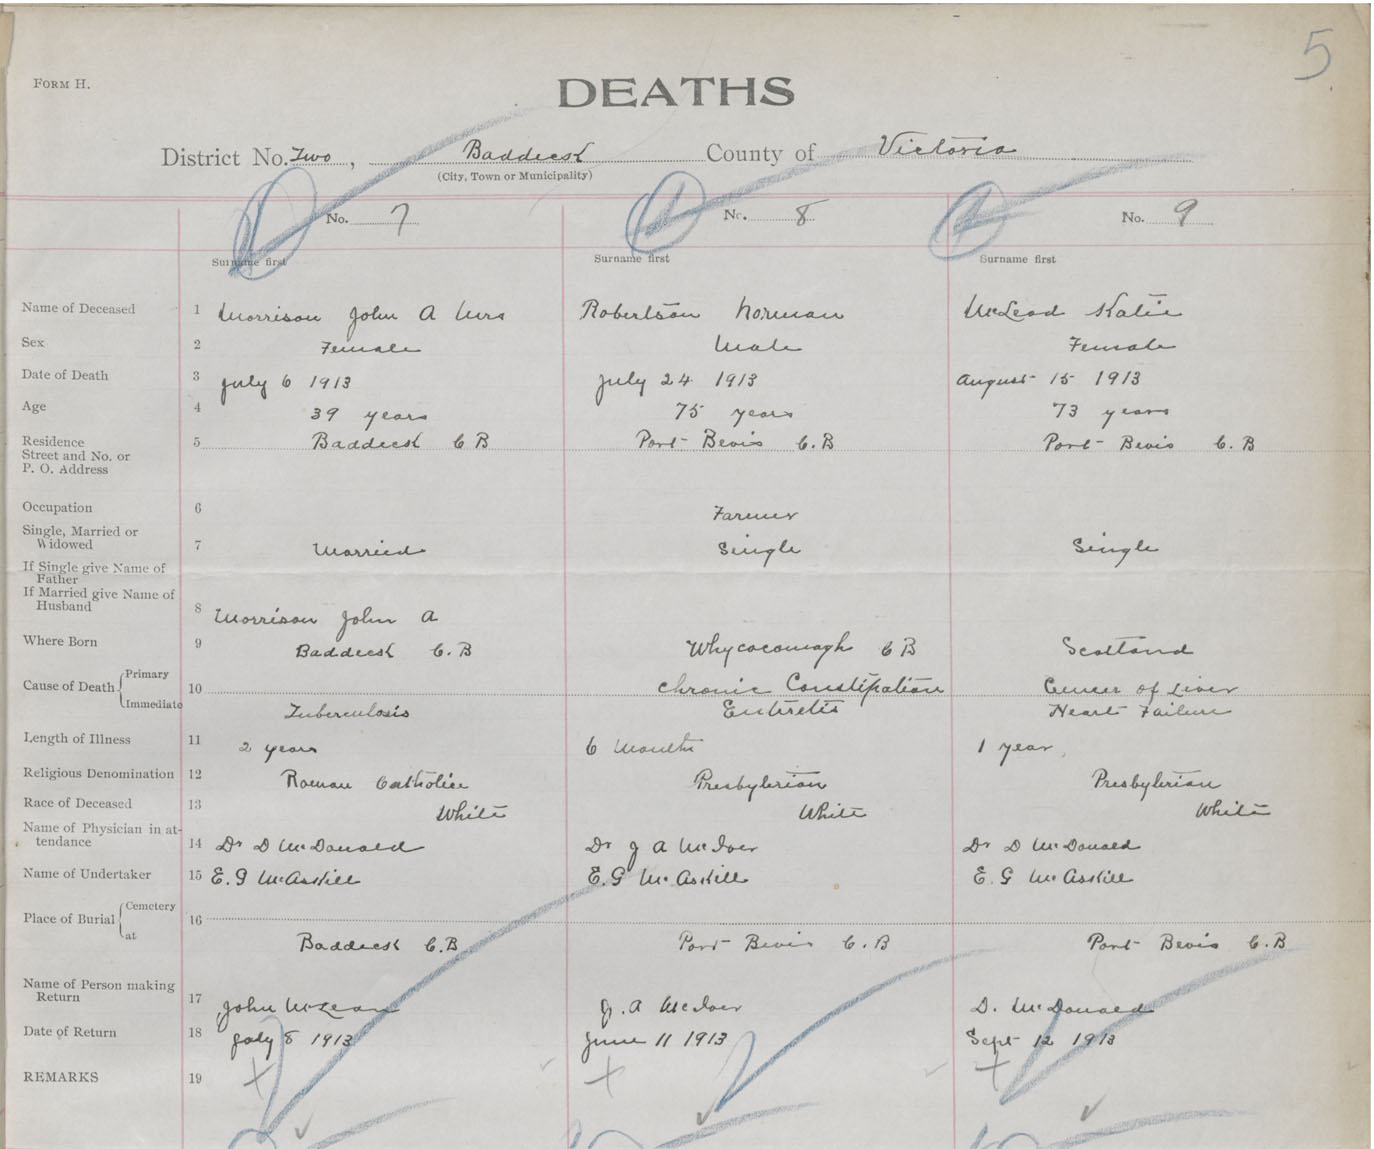 5
FORM H.
DEATHS
District No. Two, Baddeck County of Victoria
(City, Town or Municipality)
No. 7 No. 8 No. 9
Surname first Surname first Surname first
Name of Deceased 1 Morrison John A Mrs Robertson Norman McLeod Katie
Sex 2 Female Male Female
Date of Death 3 July 6 1913 July 24 1913 August 15 1913
Age 4 39 years 75 years 73 years
Residence 5 Baddeck C B Port Bevis C.B Port Bevis C.B
Street and No. or
P. O. Address
Occupation 6 Farmer
Single, Married or
Widowed 7 Married Single Single
If Single give Name of
Father
If Married give Name of
Husband 8 Morrison John A
Where Born 9 Baddeck C.B Whycocomagh C B Scotland
Cause of Death Primary 10 Chronic Constipation Cancer of Liver
Immediate Tuberculosis Enteretis Heart Failure
Length of Illness 11 2 years 6 Months 1 year
Religious Denomination 12 Roman Catholic Presbyterian Presbyterian
Race of Deceased 13 White White White
Name of Physician in at-
tendance 14 Dr D McDonald Dr J A McIver Dr D McDonald
Name of Undertaker 15 E.G McAskill E.G McAskill E.G McAskill
Place of Burial Cemetery 16
at Baddeck C.B Port Bevis C.B Port Bevis C.B
Name of Person making
Return 17 John McLean J.A McIver D. McDonald
Date of Return 18 July 8 1913 June 11 1913 Sept 12 1913
REMARKS 19